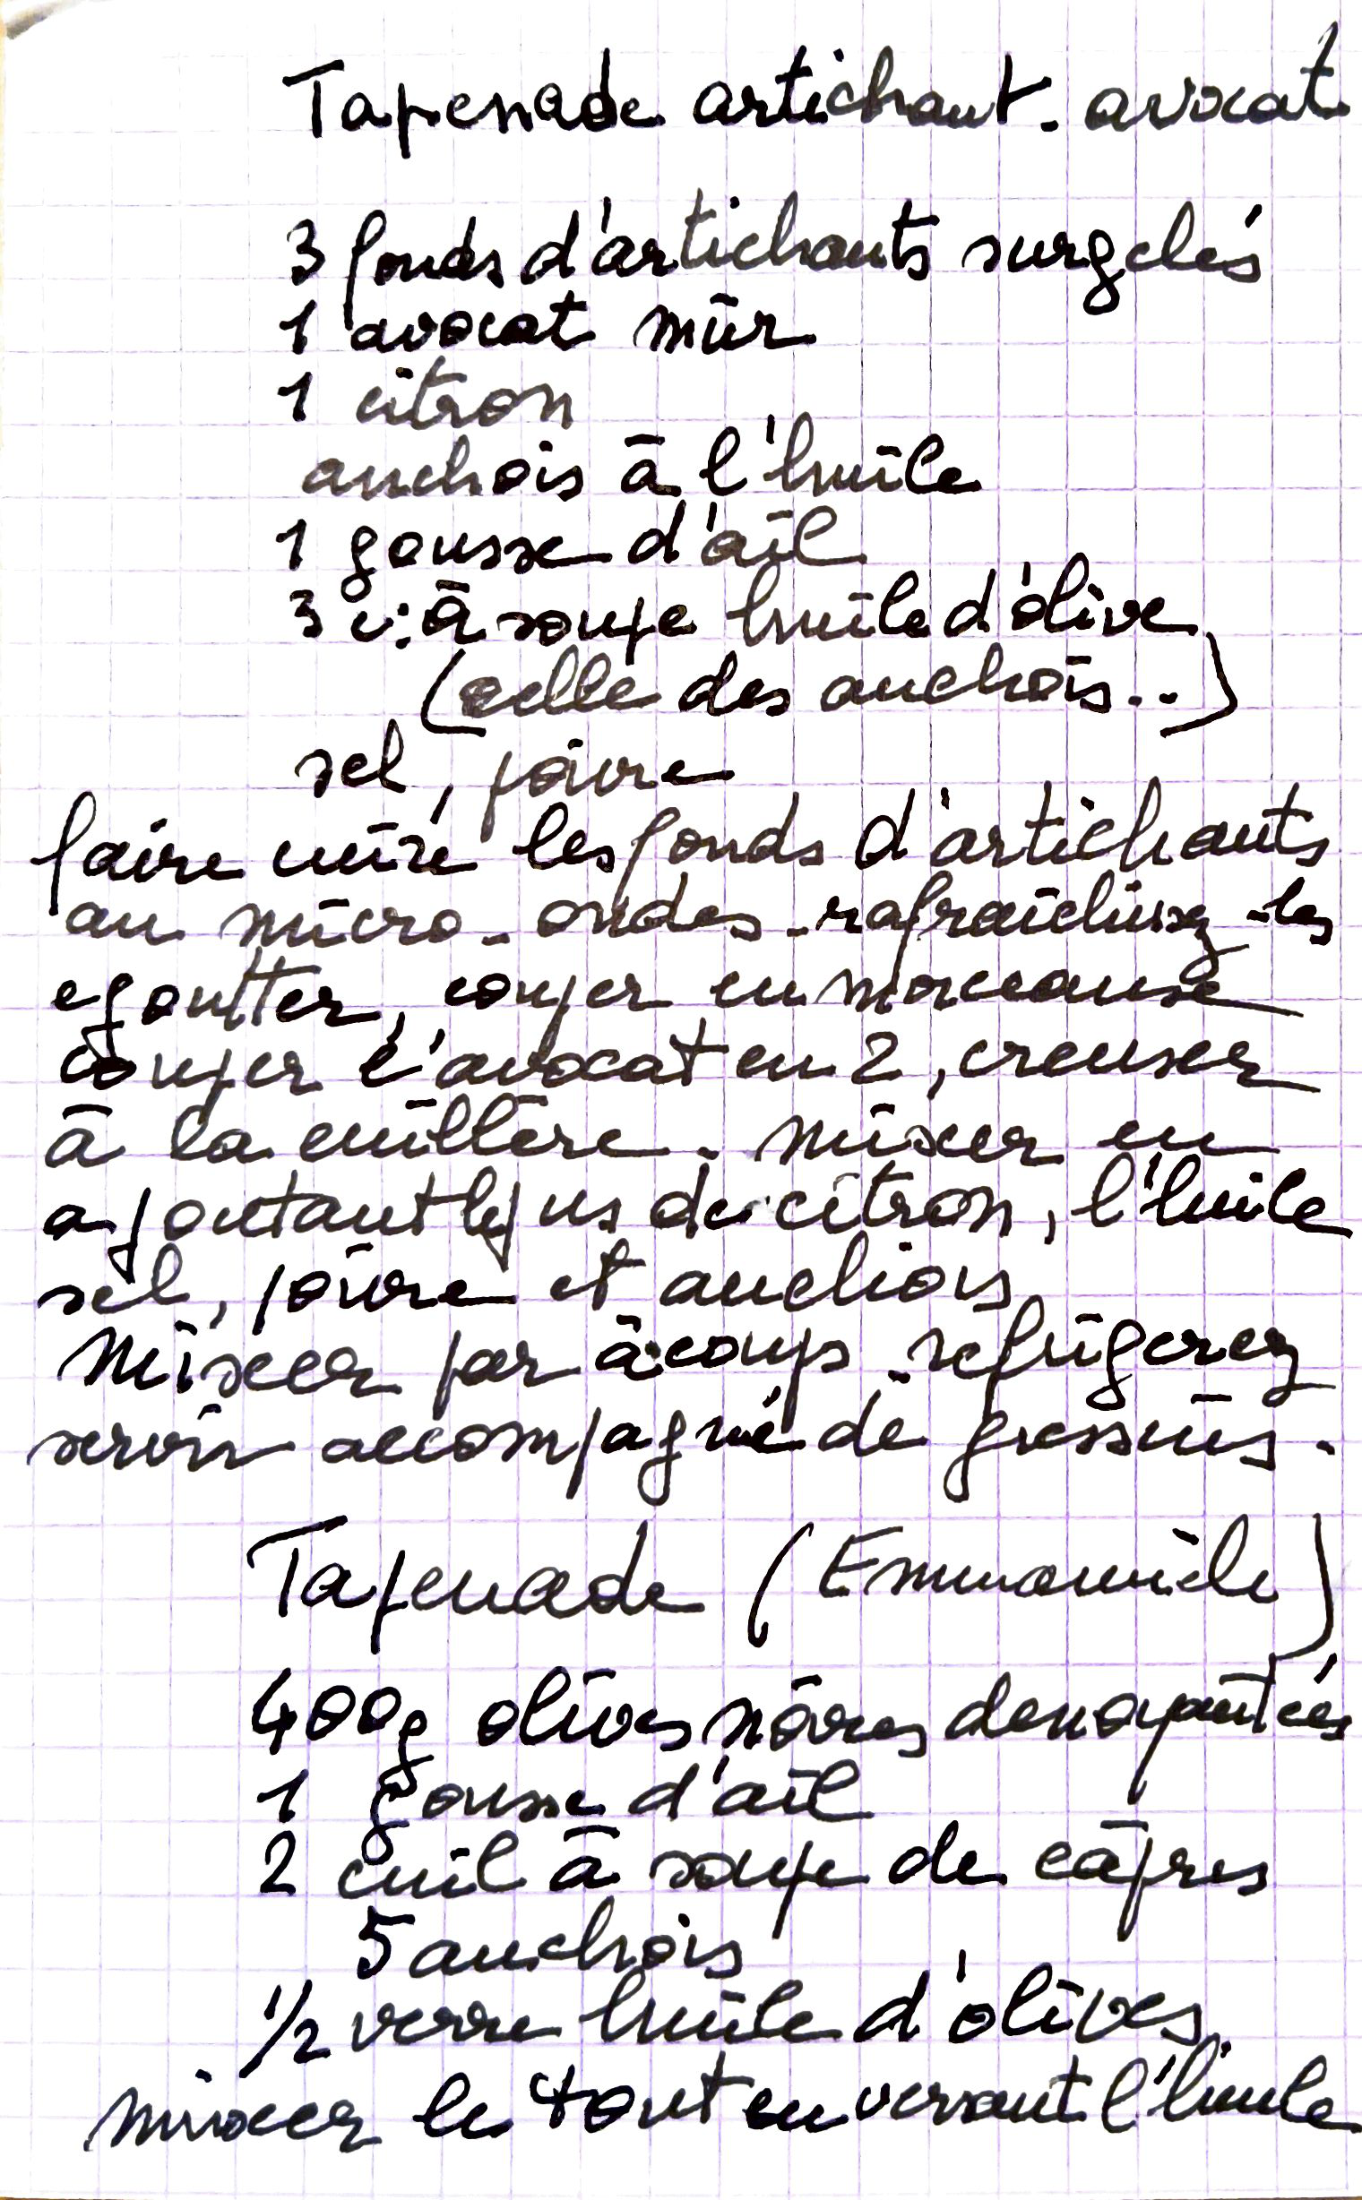 Tapenade artichaut - avocat
3 fonds d'artichauts surgelés
1 avocat mûr
1 citron
anchois à l'huile
1 gousse d'ail
3 c: à soupe huile d'olive
(celle des anchois..)
sel, poivre
faire cuire les fonds d'artichauts
au micro-ondes - rafraîchissez-les
egoutter, couper en morceaux
couper l'avocat en 2, creuser
à la cuillère. mixer en
ajoutant le jus de citron, l'huile
sel, poivre et anchois
Mixer par àcoups - refrigerez
servir accompagné de gressins.
Tapenade (Emmanuièle)
400g olives noires denoyautées
1 gousse d'ail
2 cuil à soupe de câpres
5 anchois
1/2 verre huile d'olives
mixer le tout en versant l'huile